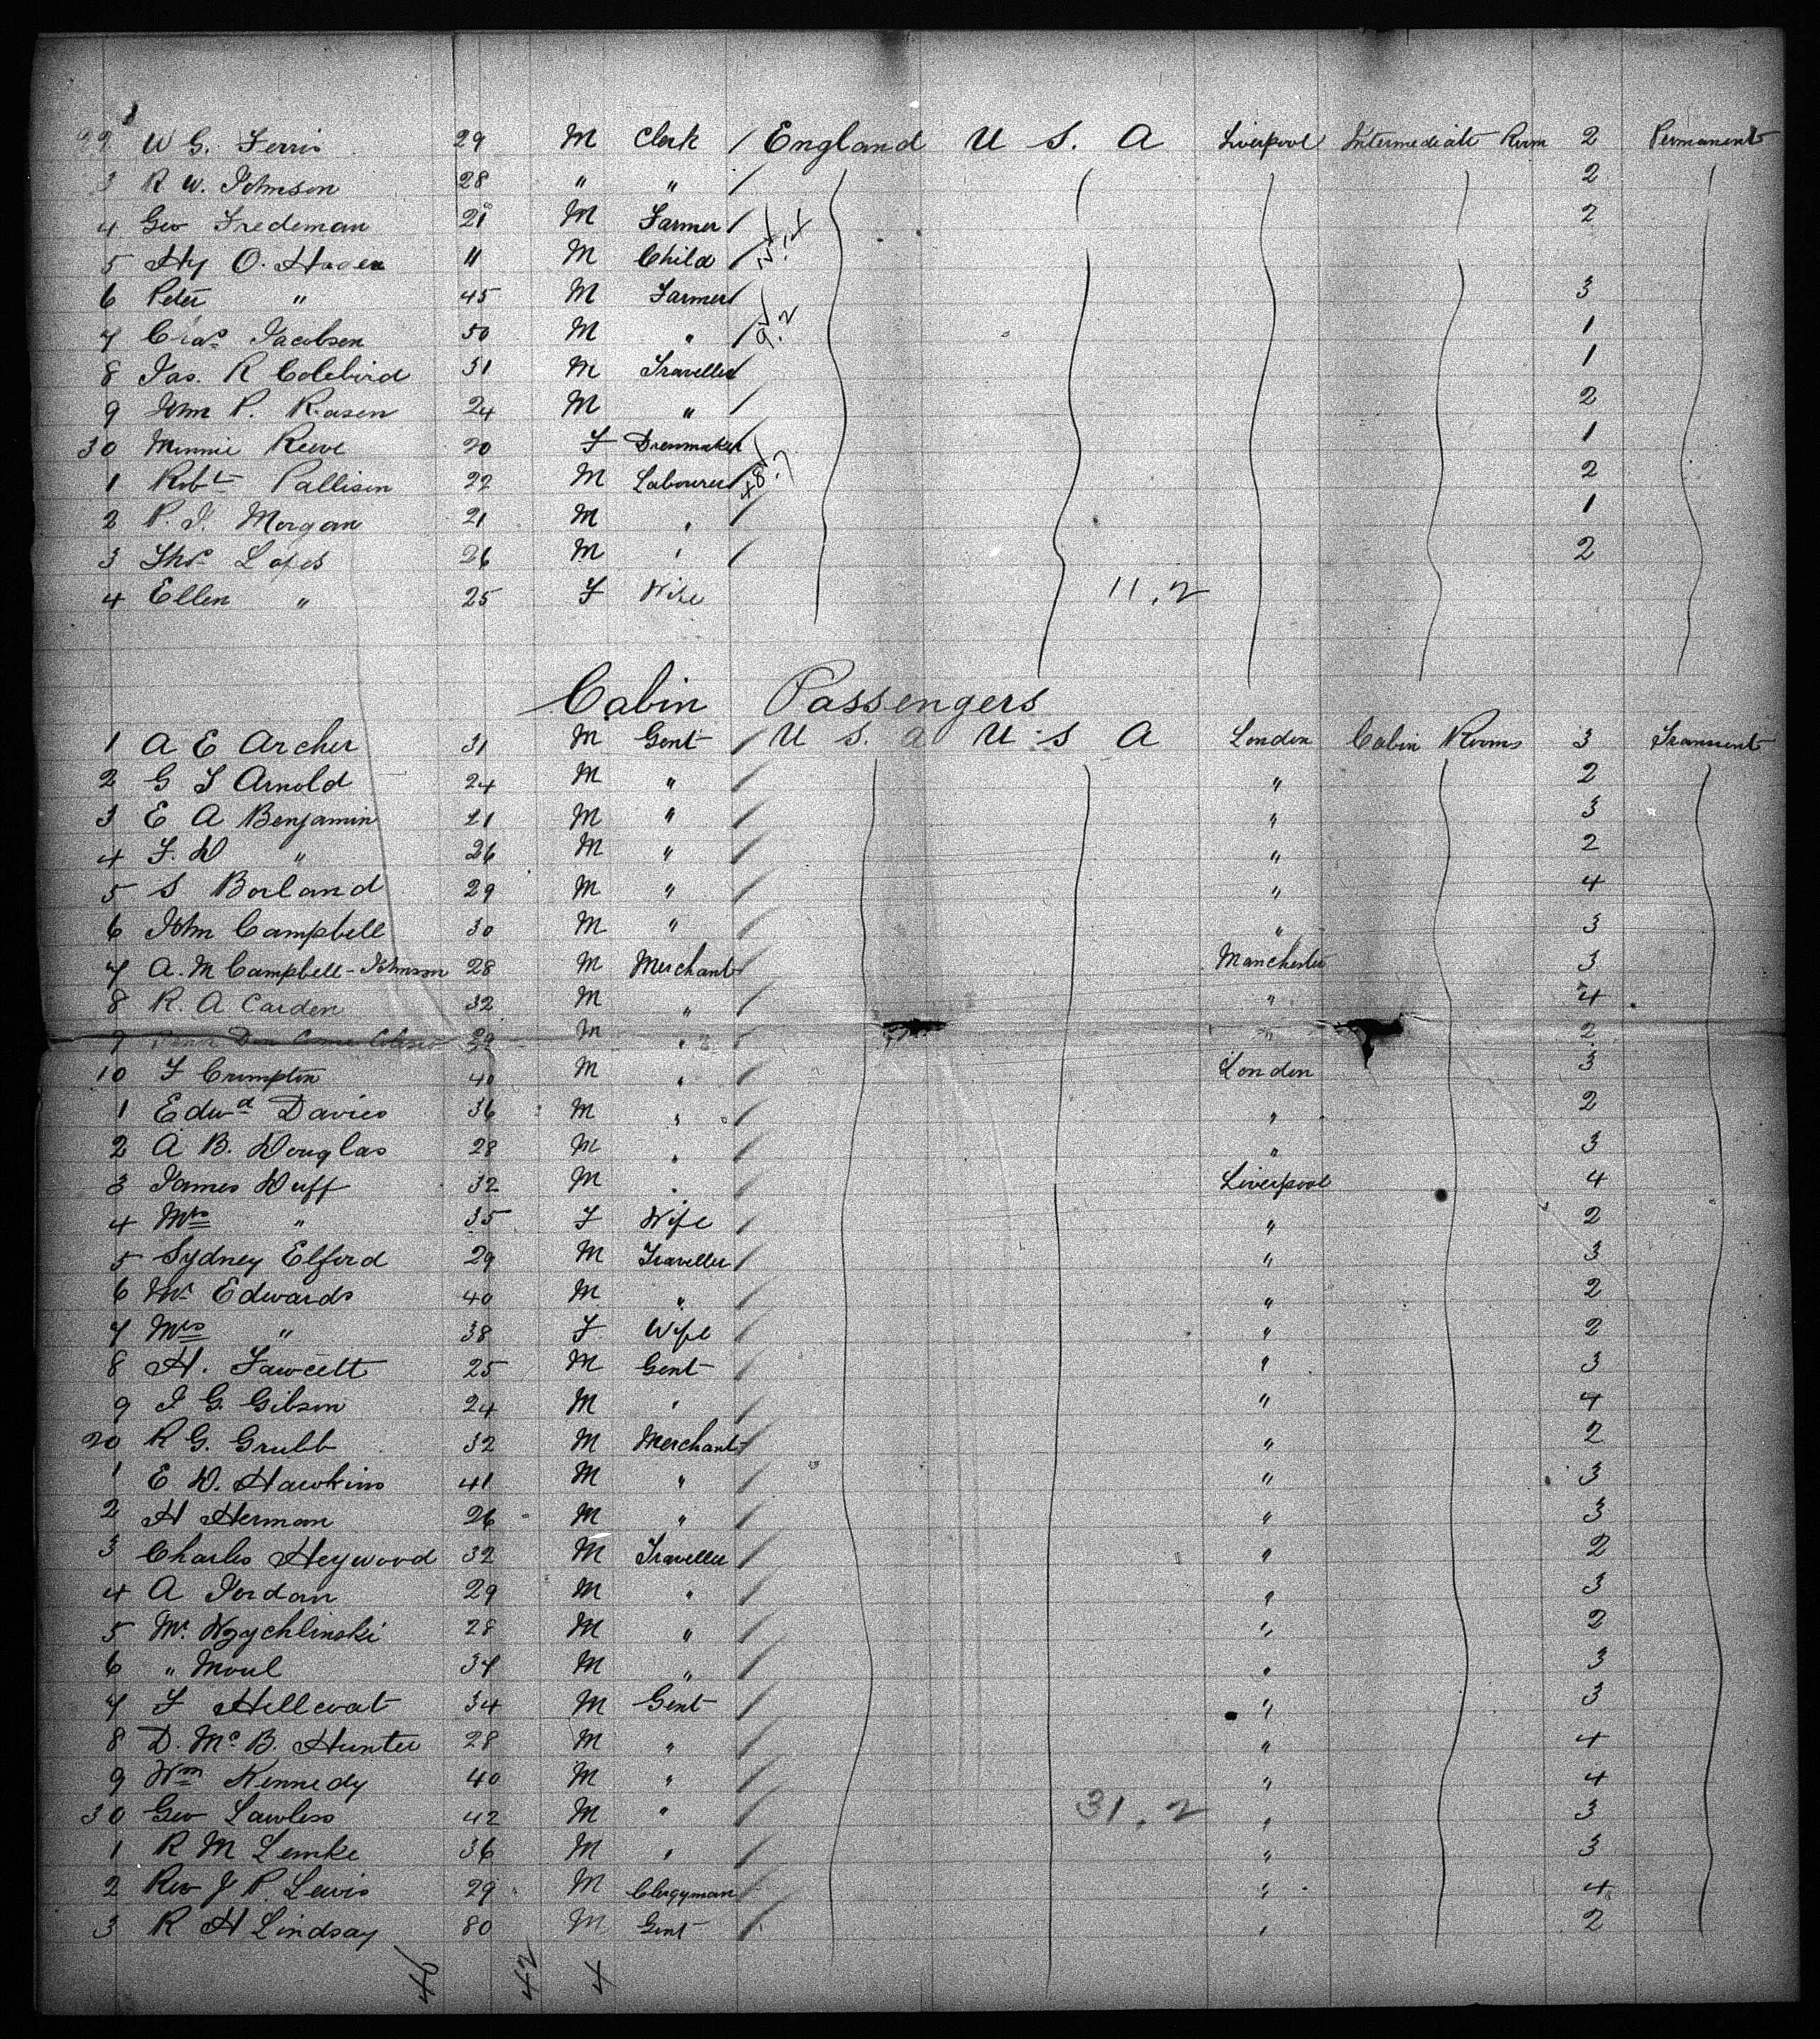 22 W G. Ferris 29 M Clerk / England U S. A Liverpool Intermediate Room 2 Permanent
3 R W. Johnson 28 " " / 2
4 Geo Fredeman 21 M Farmer / 2
5 Hy O. Hagen 11 M Child /
6 Peter " 45 M Farmer / 3
7 Chas Jacobsen 50 M " / 1
8 Jas. R Colebird 31 M Traveller / 1
9 John P. Rasen 24 M " / 2
30 Minnie Reeve 20 F Dressmaker / 1
1 Robt Pallisen 22 M Labourer / 2
2 P. J. Morgan 21 M " / 1
3 Thos Lopes 26 M " / 2
4 Ellen " 25 F Wife 11.2
Cabin Passengers
1 A E Archer 31 M Gent / U S. A U S A London Cabin Rooms 3 Transient
2 G T Arnold 24 M " / " 2
3 E A Benjamin 21 M " / " 3
4 F. D " 26 M " / " 2
5 S Borland 29 M " / " 4
6 John Campbell 30 M " / " 3
7 A. M Campbell-Johnson 28 M Merchant / Manchester 3
8 R. A Carden 32 M " / " 4
9 M " " 2
10 F Crompton 40 M " / London 3
1 Edwd Davies 36 M " / " 2
2 A B. Douglas 28 M " / " 3
3 James Duff 32 M " / Liverpool 4
4 Mrs " 35 F Wife / " 2
5 Sydney Elford 29 M Traveller / " 3
6 Mr Edwards 40 M " / " 2
7 Mrs " 38 F Wife / " 2
8 H. Fawcett 25 M Gent / " 3
9 J G. Gibson 24 M " / " 4
20 R G. Grubb 32 M Merchant / " 2
1 E D. Hawkins 41 M " / " 3
2 H Herman 26 M " / " 3
3 Charles Heywood 32 M Traveller / " 2
4 A Jordan 29 M " / " 3
5 Mr. Wzychlinski 28 M " / " 2
6 " Moul 34 M " / " 3
7 F Hellcoat 34 M Gent / " 3
8 D. Mc B. Hunter 28 M " / " 4
9 Wm Kennedy 40 M " / " 4
30 Geo Lawless 42 M " / 31.2 " 3
1 R M Lemke 36 M " / " 3
2 Rev J P. Lewis 29 M Clergyman " 4
3 R H Lindsay 80 M Gent / " 2
46 42 4